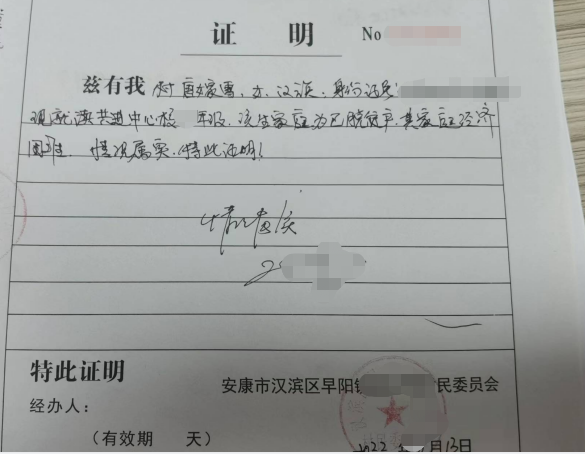 证 明 No
兹有我 村唐家雪，女，汉族，身份证号：
现就读共进中心校 年级，该生家庭为已脱贫户，其家庭经济
困难，情况属实，特此证明！
情况属实
2
特此证明
安康市汉滨区早阳镇 民委员会
经办人：
（有效期 天） 2022年 月13日